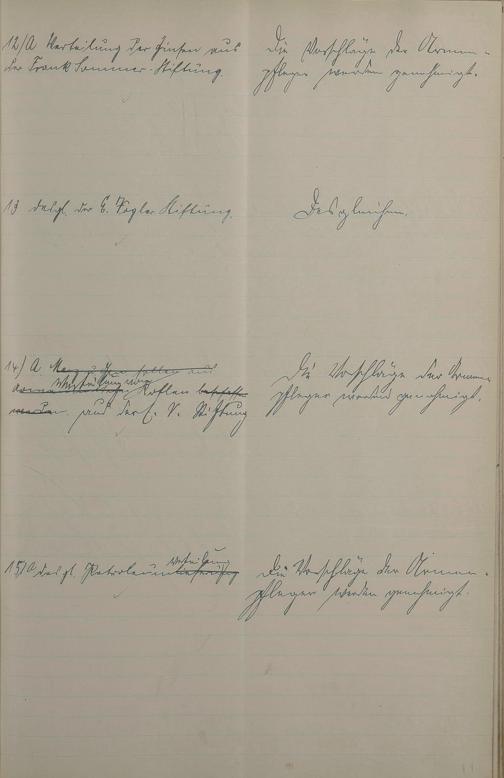 12/A Verteilung der Zinsen aus
der Frank Sommer-Stiftung.
Die Vorschläge der Armen-
pfleger werden genehmigt.
13 desgl. der E. Vogler Stiftung.
Desgleichen.
14/ A
Verteilung von
Kohlen
werden. aus der E. V. Stiftung
Die Vorschläge der Armen-
pfleger werden genehmigt.
Verteilung
15/A desgl. Petroleum
Die Vorschläge der Armen-
pfleger werden genehmigt.